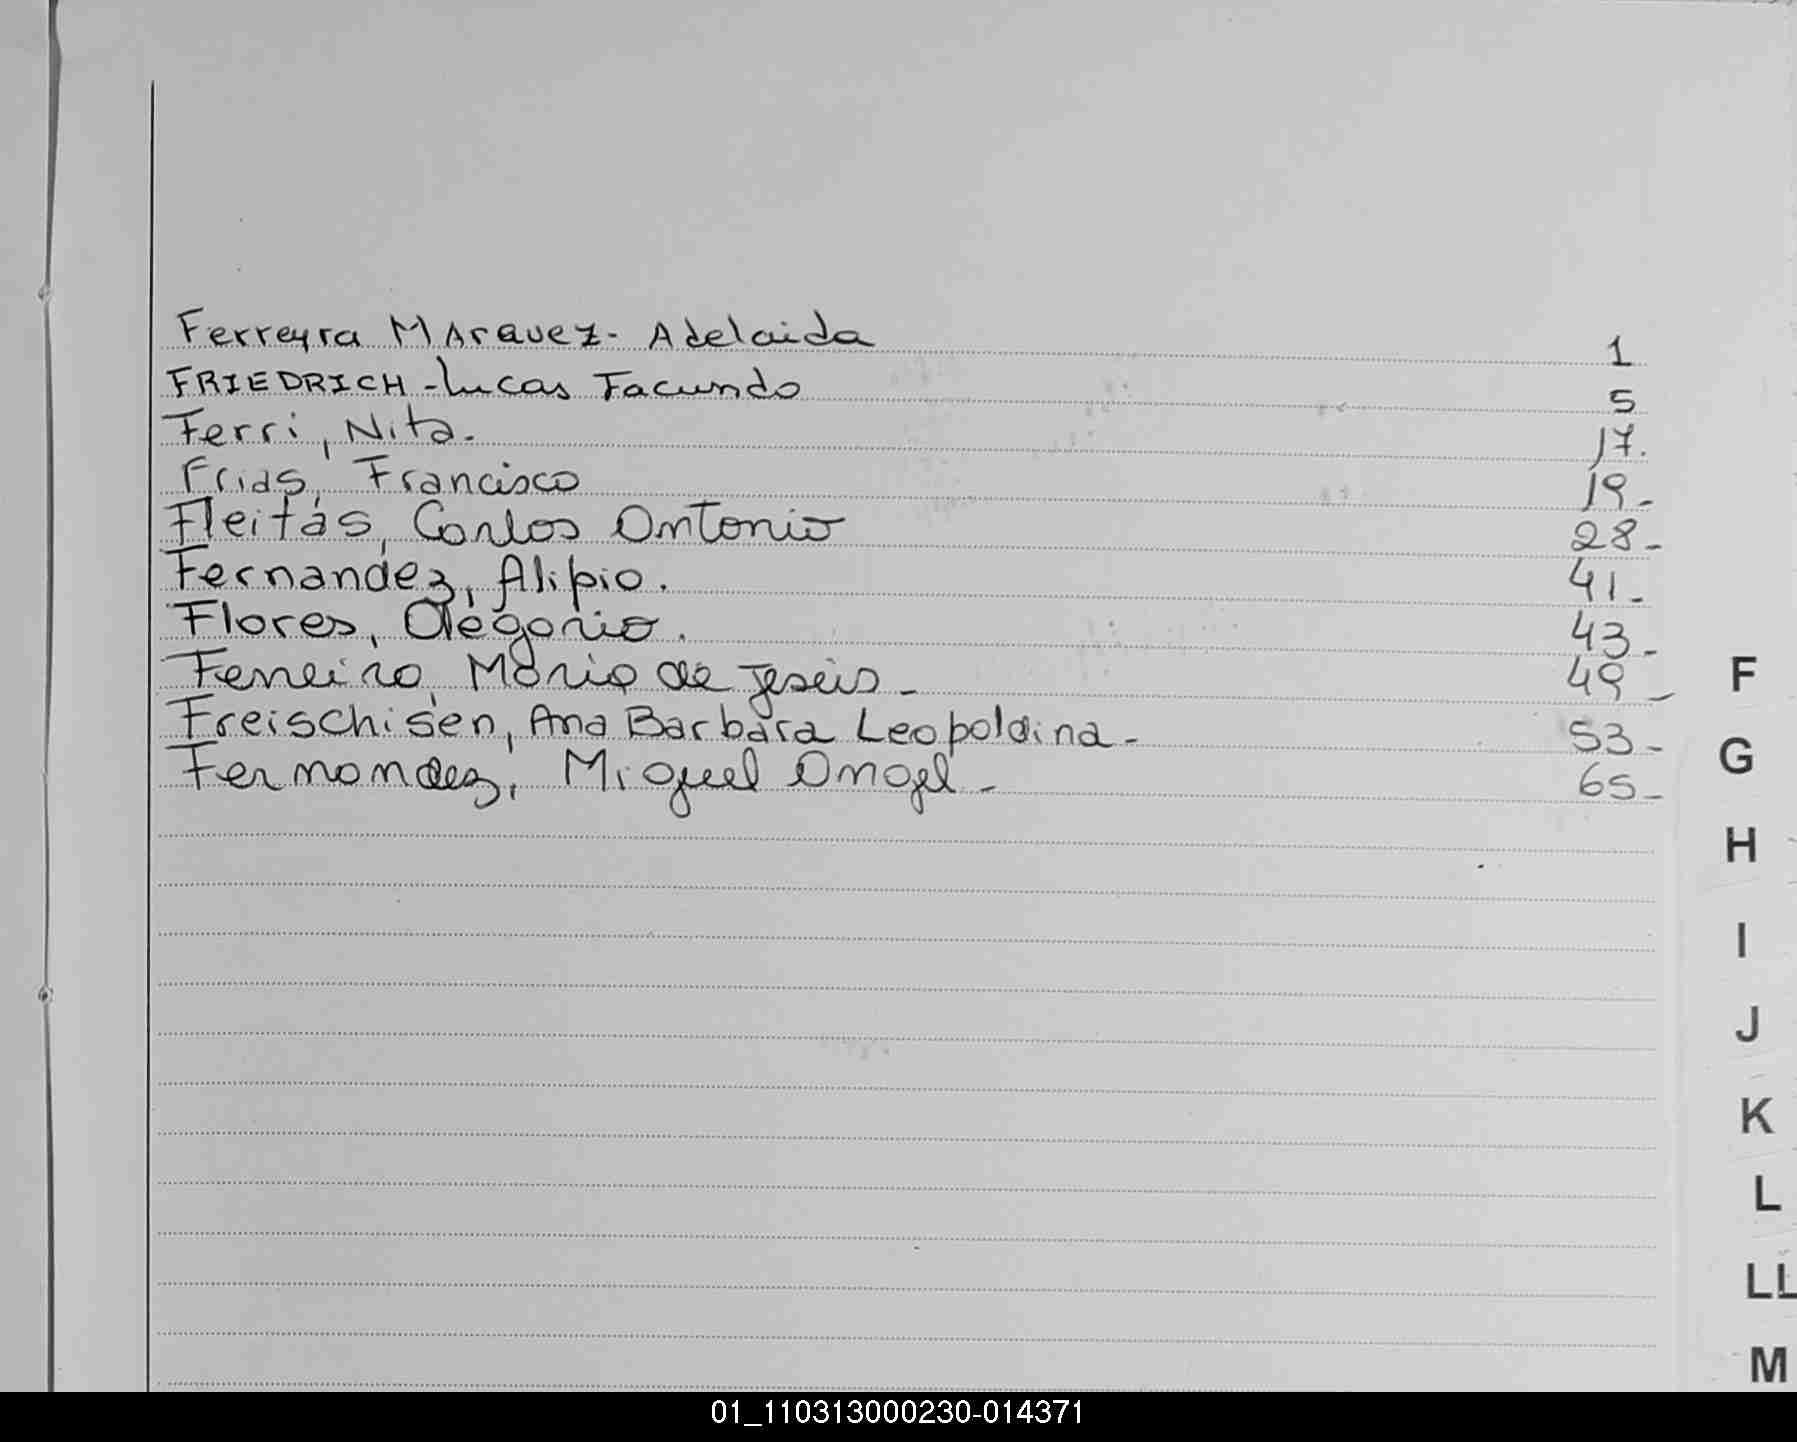 Ferreyra MArquez- Adelaida 1
FRIEDRICH-Lucas Facundo 5
Ferri, Nita. 17.
Frias, Francisco 19-
Fleitas, Carlos Antonio 28-
Fernandez, Alipio. 41-
Flores, Olegorio. 43-
Ferreiro, Mario de Jesús- 49-
Freischisen, Ana Barbara Leopoldina- 53-
Fernandez, Miguel Angel- 65-
F
G
H
I
J
K
L
LL
M
01_110313000230-014371